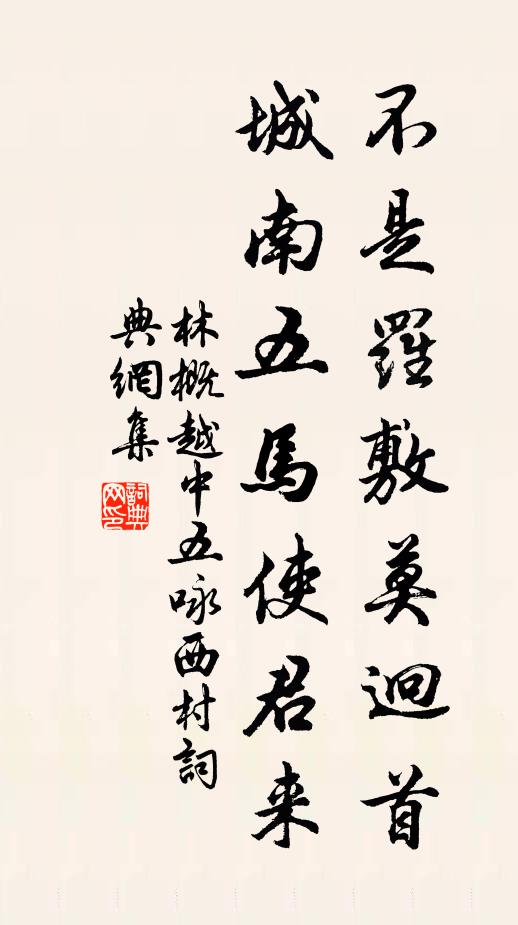 不是羅敷莫迴首
城南五馬使君来
林概越中五咏西村詞
典網集
詞典网印